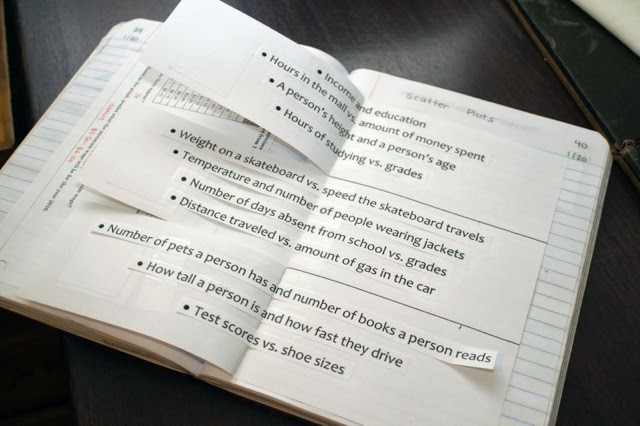 Scatter Plots
39
1/20
40
1/20
• Income and education
• Hours in the mall vs. amount of money spent
• A person's height and a person's age
• Hours of studying vs. grades
• Weight on a skateboard vs. speed the skateboard travels
• Temperature and number of people wearing jackets
• Number of days absent from school vs. grades
• Distance traveled vs. amount of gas in the car
• Number of pets a person has and number of books a person reads
• How tall a person is and how fast they drive
• Test scores vs. shoe sizes